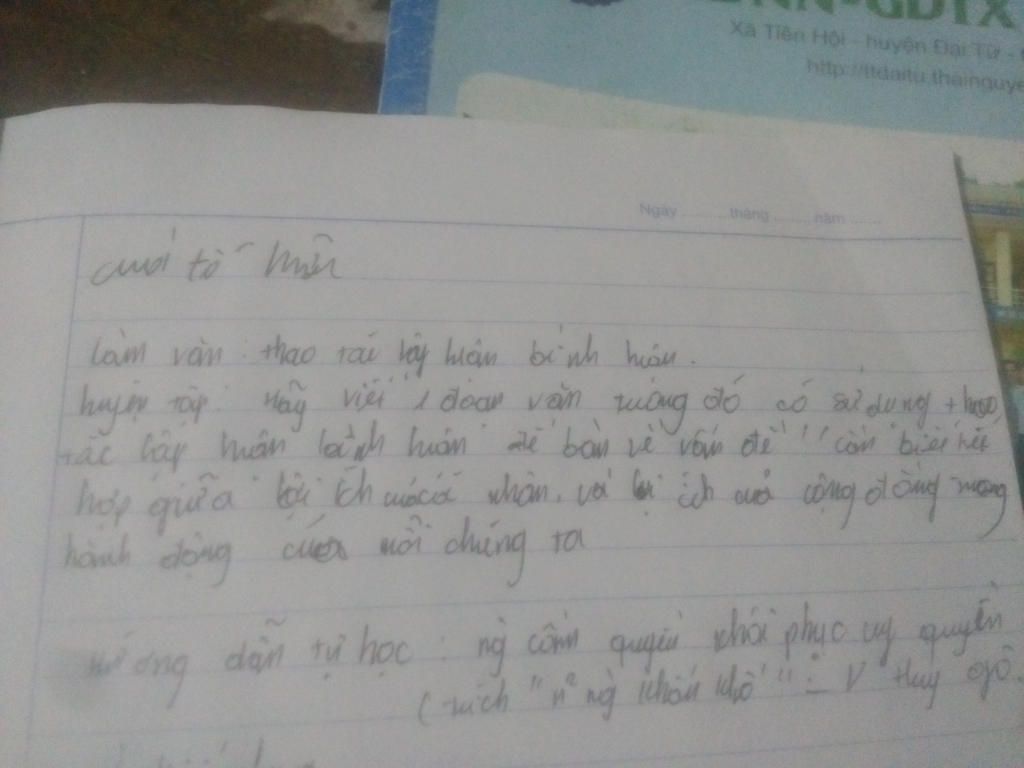 GDTX
Xã Tiên Hội - huyện Đại Từ -
http://ttdaitu.thainguye
Ngày ........ tháng ........ năm ........
làm văn: thao tác lập luận bình luận.
luyện tập: Hãy viết 1 đoạn văn trong đó có sử dụng thao
tác lập luận bình luận để bàn về vấn đề " cần biết kết
hợp giữa lợi ích của cá nhân, và lợi ích của cộng đồng trong
hành động của mỗi chúng ta
hướng dẫn tự học: ng cầm quyền khôi phục uy quyền
(trích "n² ng khốn khổ" - V Huy gô.